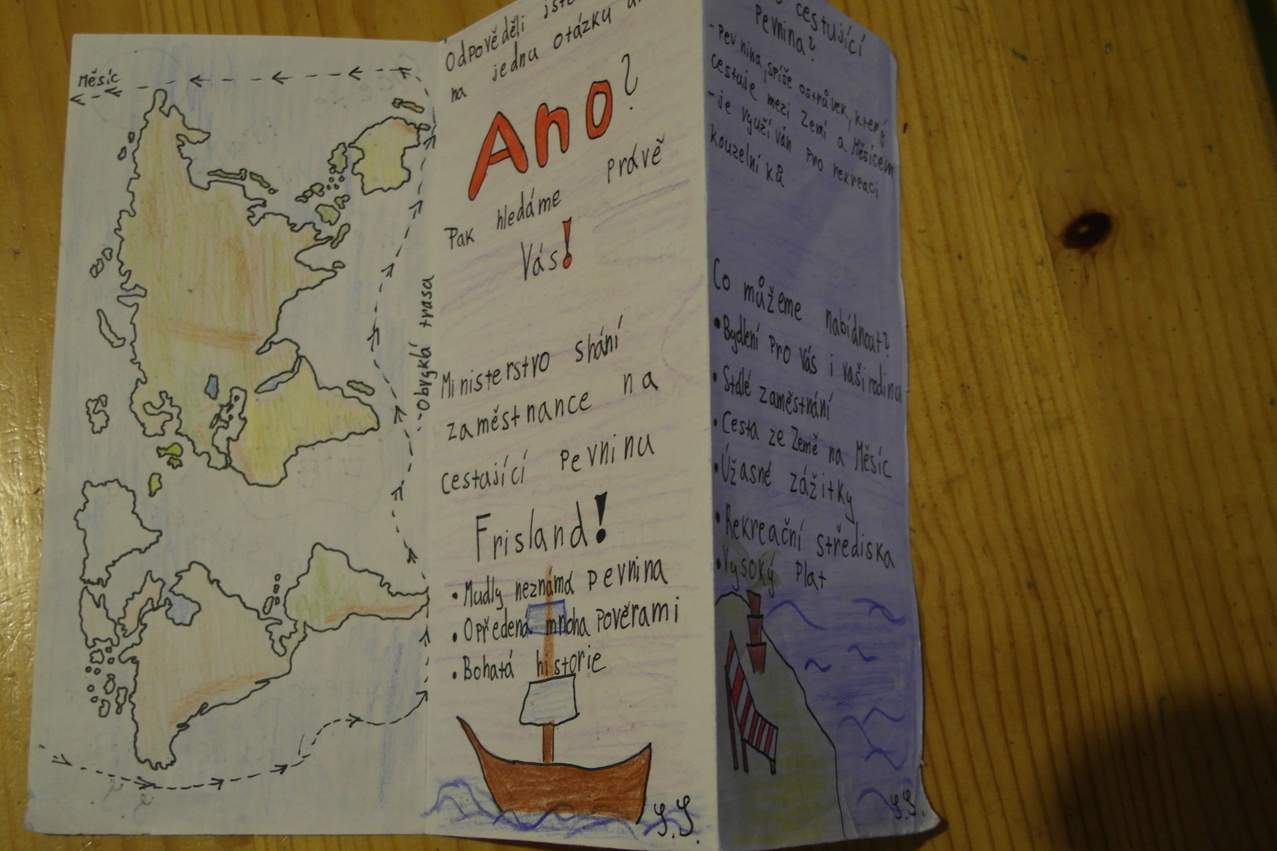 Měsíc
Obvyklá trasa
Odpověděli jste
na jednu otázku
Ano?
Pak hledáme právě
Vás!
Ministerstvo shání
zaměstnance na
cestající pevninu
Frisland!
• Mudly neznámá pevnina
• Opředená mnoha pověrami
• Bohatá historie
S.S.
cestující
Pevnina?
- Pevnina, spíše ostrůvek, který
cestuje mezi Zemí a Měsícem
- je využíván pro rekreaci
kouzelníků
Co můžeme nabídnout?
• Bydlení pro Vás i vaši rodinu
• Stálé zaměstnání
• Cesta ze Země na Měsíc
• Úžasné zážitky
• Rekreační střediska
• Vysoký plat
S.S.